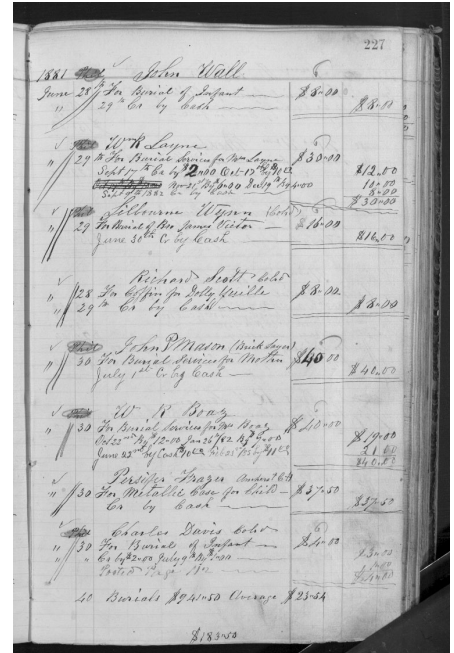 227
1881 John Wall
June 28th For Burial of Infant $8.00
" 29th Cr by Cash $8.00
Wm R Layne
" 29th For Burial Services for Mrs Layne $30.00
Sept 17th Cr by $12.00 Oct 17th By 10.00 $12.00
Nov 21 By Dec 19th By 4.00 10.00
Sept 9th 1882 Cr by Cash 8.00
$30.00
Selbourne Wynn (Cold) $16.00
" 29 For Burial of Bro James Victor
June 30th Cr by Cash $16.00
Richard Scott Cold
" 28 For Coffin for Dolly Quille $8.00
" 29th Cr by Cash $8.00
John P Mason (Brick Layer)
" 30 For Burial Services for Mother $40.00
July 1st Cr by Cash $40.00
W R Boaz
" 30 For Burial Services for Mrs Boaz $40.00
Oct 22nd By $12.00 Jan 26th 82 By $7.00 $19.00
June 23rd by Cash $10 Feb 25th $11
$40.00
Persifer Frazer Amherst
" 30 For Metallic Case for Child $37.50
Cr by Cash $37.50
Charles Davis Cold
" 30 For Burial of Infant $4.00
" Cr by $ July 9th By 1.00 $3.00
Posted Page 1.00
$4.00
40 Burials $941.50 Average $23.54
$183.50